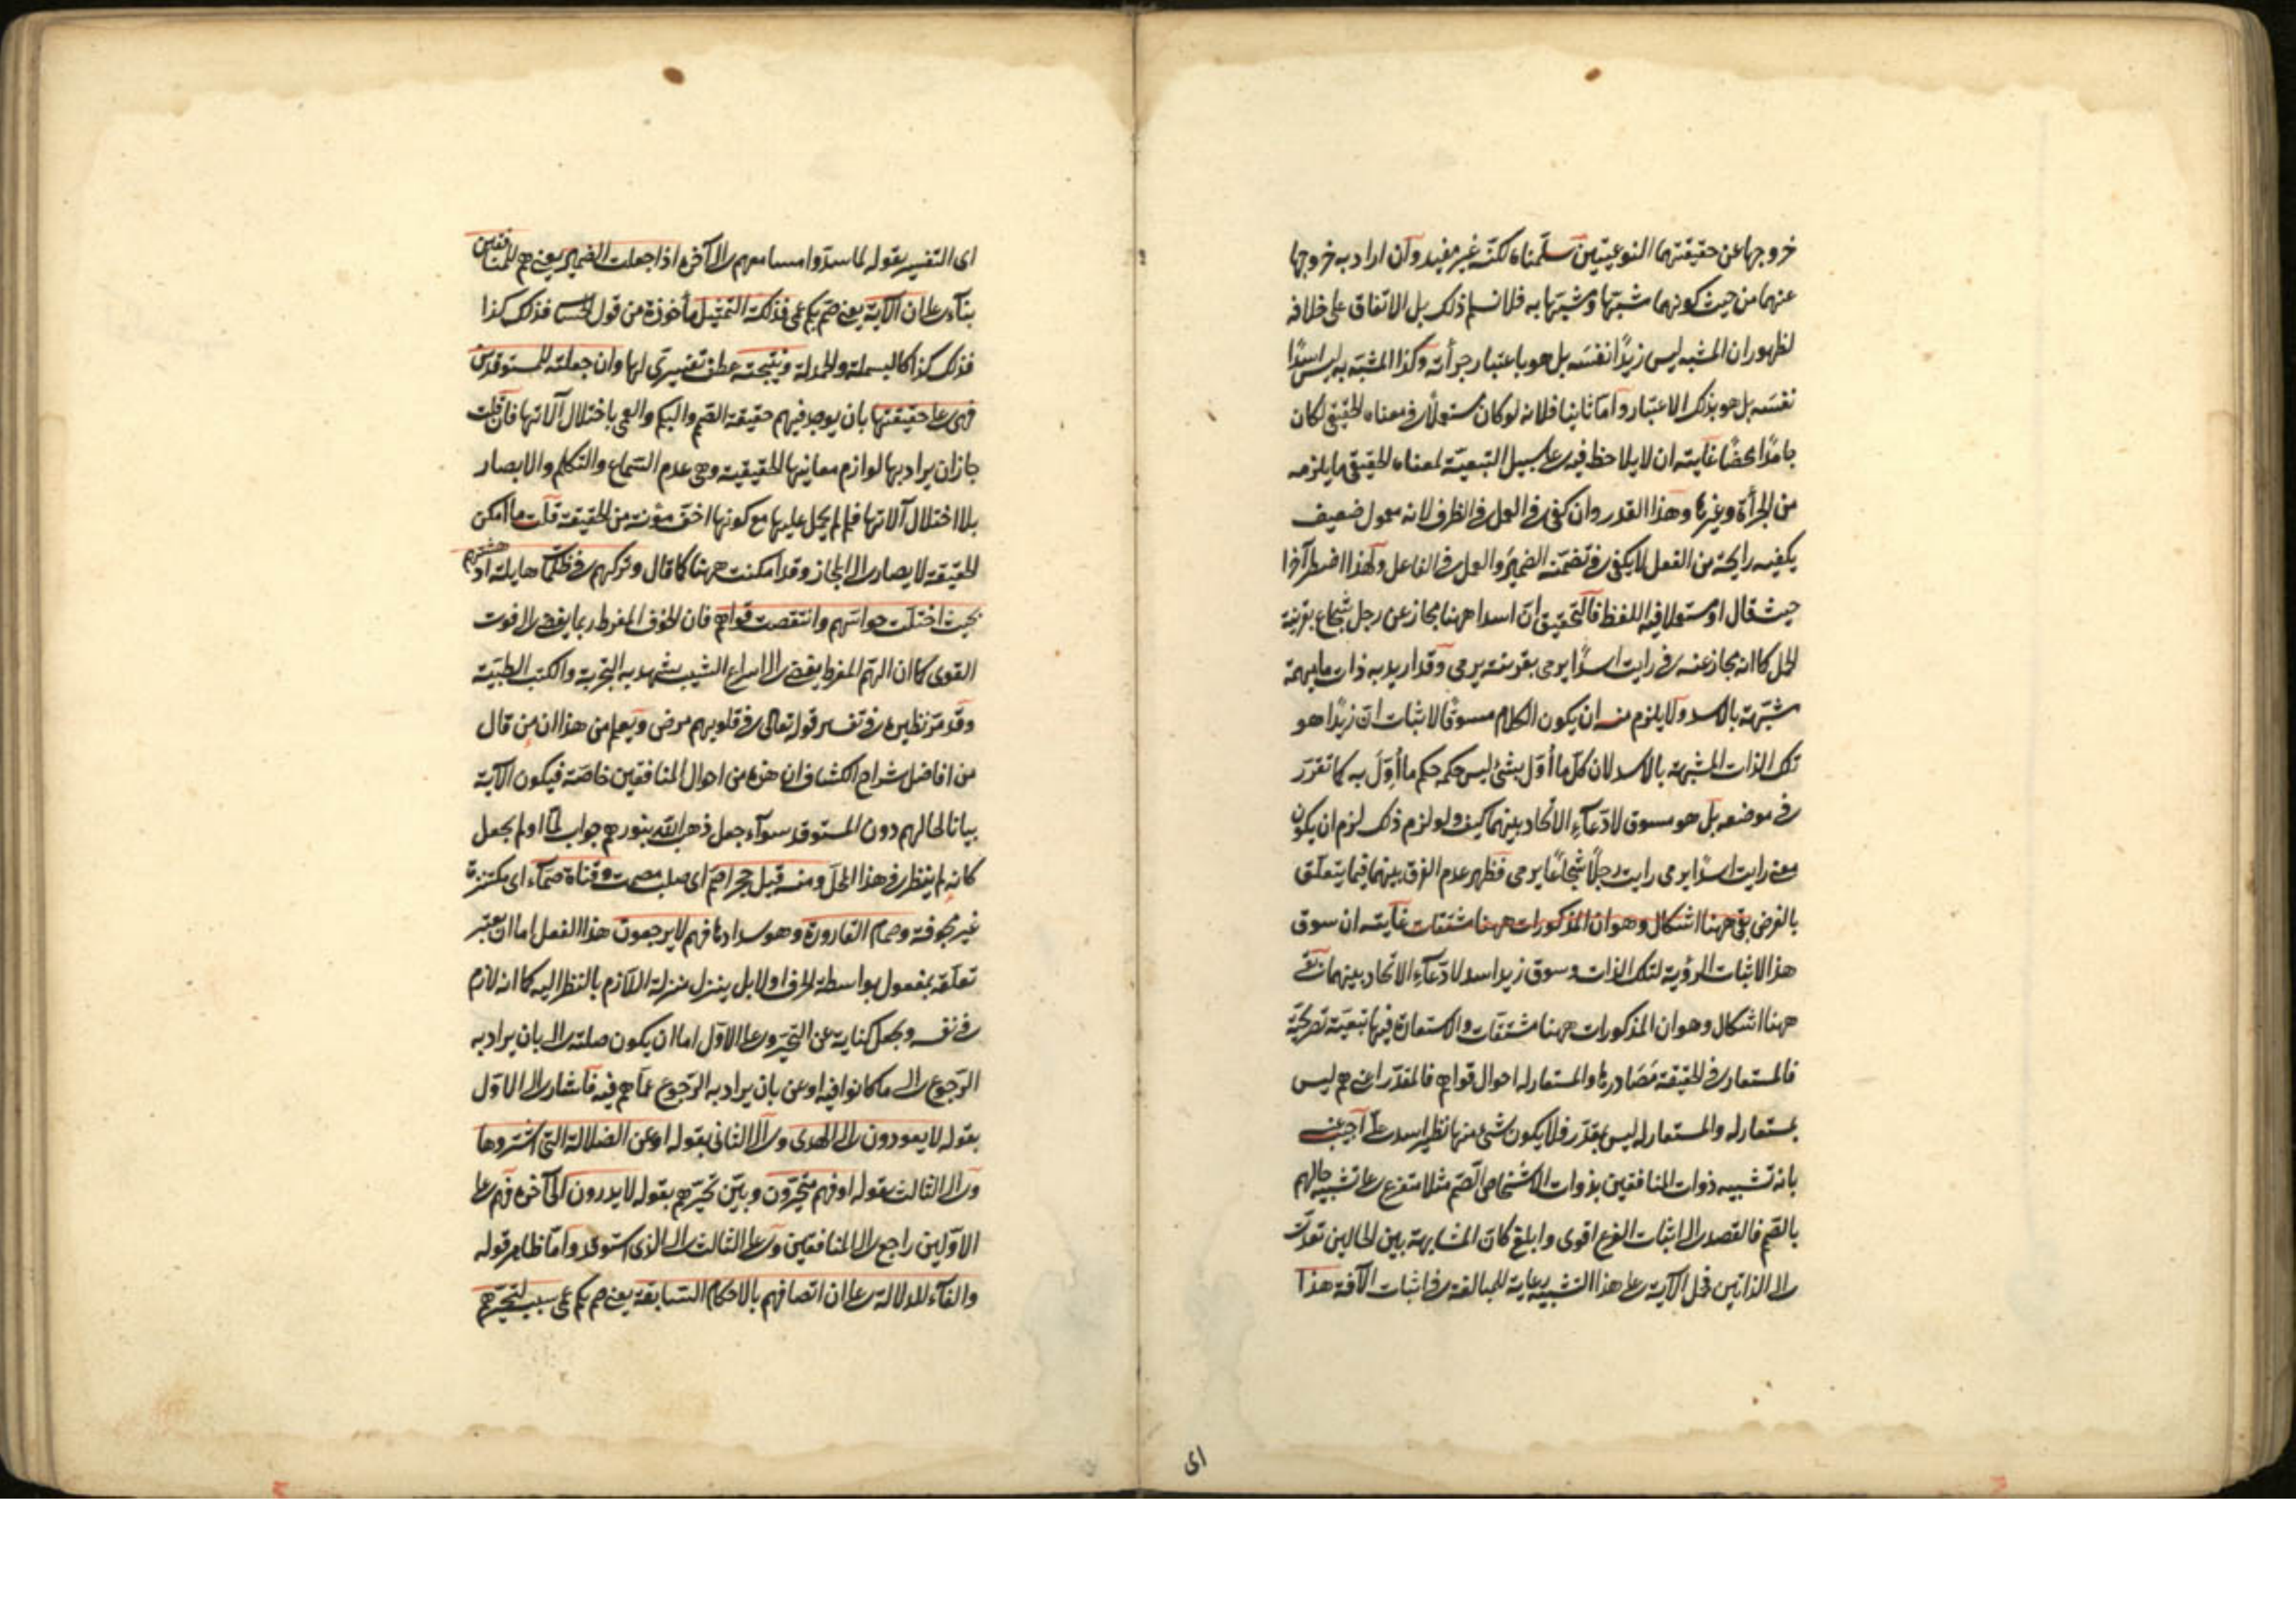 خروجها عن حقيقتهما النوعيتين سلمناه لكنه غير مفيد وان اراد به خروجها
عنهما من حيث كونهما مشبها ومشبها به فلا نسلم ذلك بل الاتفاق على خلافه
لظهور ان المشبه ليس زيدا نفسه بل هو باعتبار جرأته وكذا المشبه به ليس اسدا
نفسه بل هو بذلك الاعتبار واما ثانيا فلانه لو كان مستعملا في معناه الحقيقي لكان
جامدا محضا غايته ان لا يلاحظ فيه على سبيل التبعية لمعناه الحقيقي ما يلزمه
من الجرأة وغيرها وهذا القدر وان كفى في العمل في الظرف لانه معمول ضعيف
يكفيه رايحة من الفعل لا يكفي في تضمنه الضمير والعمل في الفاعل ولهذا اضطر آخرا
حيث قال او مستعملا فيه اللفظ فالتحقيق ان اسدا ههنا مجاز عن رجل شجاع بقرينة
الحمل كما انه مجاز عنه في رايت اسدا يرمي بقرينة يرمي وقد اريد به ذات ما مبهمة
مشبهة بالاسد ولا يلزم منه ان يكون الكلام مسوقا لاثبات ان زيدا هو
تلك الذات المشبهة بالاسد لان كل ما أول بشئ ليس حكمه حكم ما أول به كما تقرر
في موضعه بل هو مسوق لادعاء الاتحاد بينهما كيف ولو لزم ذلك لزم ان يكون
معنى رايت اسدا يرمي رايت رجلا شجاعا يرمي فظهر عدم الفرق بينهما فيما يتعلق
بالغرض بقي ههنا اشكال وهو ان المذكورات ههنا مشتقات غايته ان سوق
هذا لاثبات الرؤية لتلك الذات وسوق زيد اسد لادعاء الاتحاد بينهما بقي
ههنا اشكال وهو ان المذكورات ههنا مشتقات والاستعارة فيها تبعية تصريحية
فالمستعار في الحقيقة مصادرها والمستعار له احوال قواهم فالمقدر اعني هم ليس
بمستعار له والمستعار له ليس بمقدر فلا يكون شئ منها نظير اسد على اجيب عنه
بانه تشبيه ذوات المنافقين بذوات الاشخاص الصم مثلا متفرع على تشبيه حالهم
بالصم فالقصد الى اثبات الفرع اقوى وابلغ كان المشابهة بين الحالين تعدت
الى الذاتين فحمل الآية على هذا التشبيه رعاية للمبالغة في اثبات الآفة هذا
اى
اى التفسير بقوله لما سدوا مسامعهم الى آخره اذا جعلت الضمير يعني هم للمنافقين
بناء على ان الآية يعني صم بكم عمي فذلكة التمثيل مأخوذة من قول فذلك كذا
فذلك كذا كالبسملة والحمدلة ونتيجته عطف تفسيري لها وان جعلته للمستوقدين
فهي على حقيقتها بان يوجد فيهم حقيقة الصم والبكم والعمي باختلال آلاتها فان قلت
جاز ان يراد بها لوازم معانيها الحقيقية وهي عدم السماع والتكلم والابصار
بلا اختلال آلاتها فلم لم يحمل عليها مع كونها اخف مؤنة من الحقيقة قلت ما امكن
الحقيقة لا يصار الى المجاز وقد امكنت ههنا كما قال وتركهم في ظلمات هايلة ادهشتهم
بحيث اختلت حواسهم وانتقصت قواهم فان الخوف المفرط ربما يفضي الى فوت
القوى كما ان الهم المفرط يفضي الى اسراع الشيب يشهد به التجربة والكتب الطبية
وقد مر نظيره في تفسير قوله تعالى في قلوبهم مرض ويعلم من هذا ان من قال
من افاضل شراح الكشاف ان هذه من احوال المنافقين خاصة فيكون الآية
بيانا لحالهم دون المستوقد سواء جعل ذهب الله بنورهم جواب لما او لم يجعل
كانه لم ينظر في هذا المحل ومنه قيل حجر اصم اى صلب مصمت وقناة صماء اى مكتنزة
غير مجوفة وصمام القارورة وهو سدادها فهم لا يرجعون هذا الفعل اما ان يعتبر
تعلقه بمفعول بواسطة الحرف او لا بل ينزل منزلة اللازم بالنظر اليه كما انه لازم
في نفسه ويجعل كناية عن التحير وعلى الاول اما ان يكون صلته الى بان يراد به
الرجوع الى ما كانوا فيه او عن بان يراد به الرجوع عما هم فيه فاشار الى الاول
بقوله لا يعودون الى الهدى والى الثاني بقوله او عن الضلالة التي اشتروها
والى الثالث بقوله او فهم متحيرون وبين تحيرهم بقوله لا يدرون الى آخره فهم على
الاولين راجع الى المنافقين وعلى الثالث الى الذي استوقد واما ظاهر قوله
والفاء للدلالة على ان اتصافهم بالاحكام السابقة يعني صم بكم عمي سبب لتحيرهم